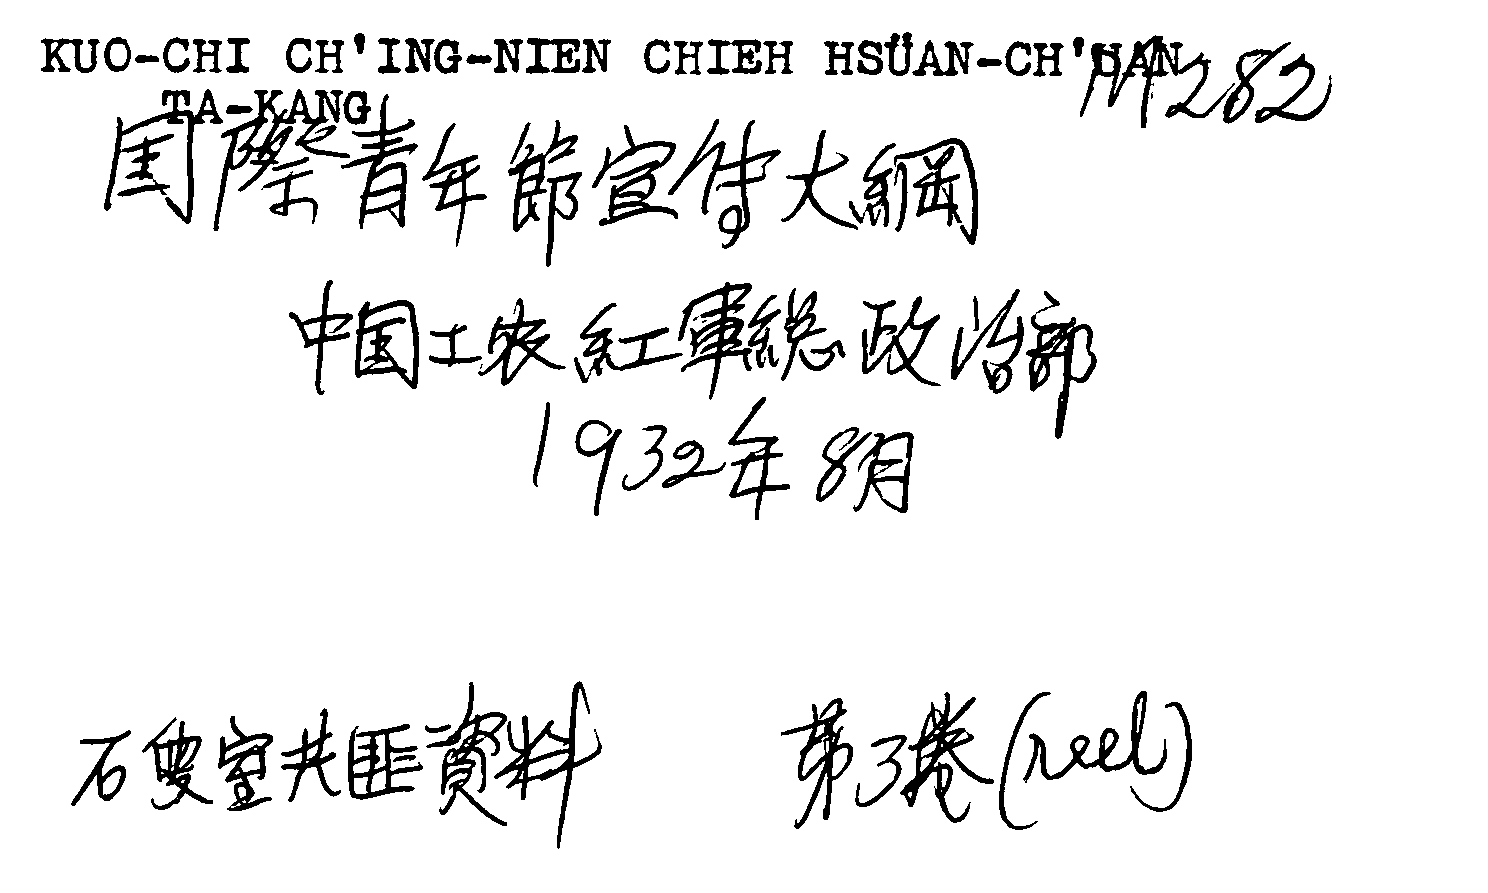 KUO-CHI CH'ING-NIEN CHIEH HSÜAN-CH'UAN M282
TA-KANG
国際青年節宣傳大綱
中国工农紅軍総政治部
1932年8月
石叟室共匪資料 第3捲(reel)